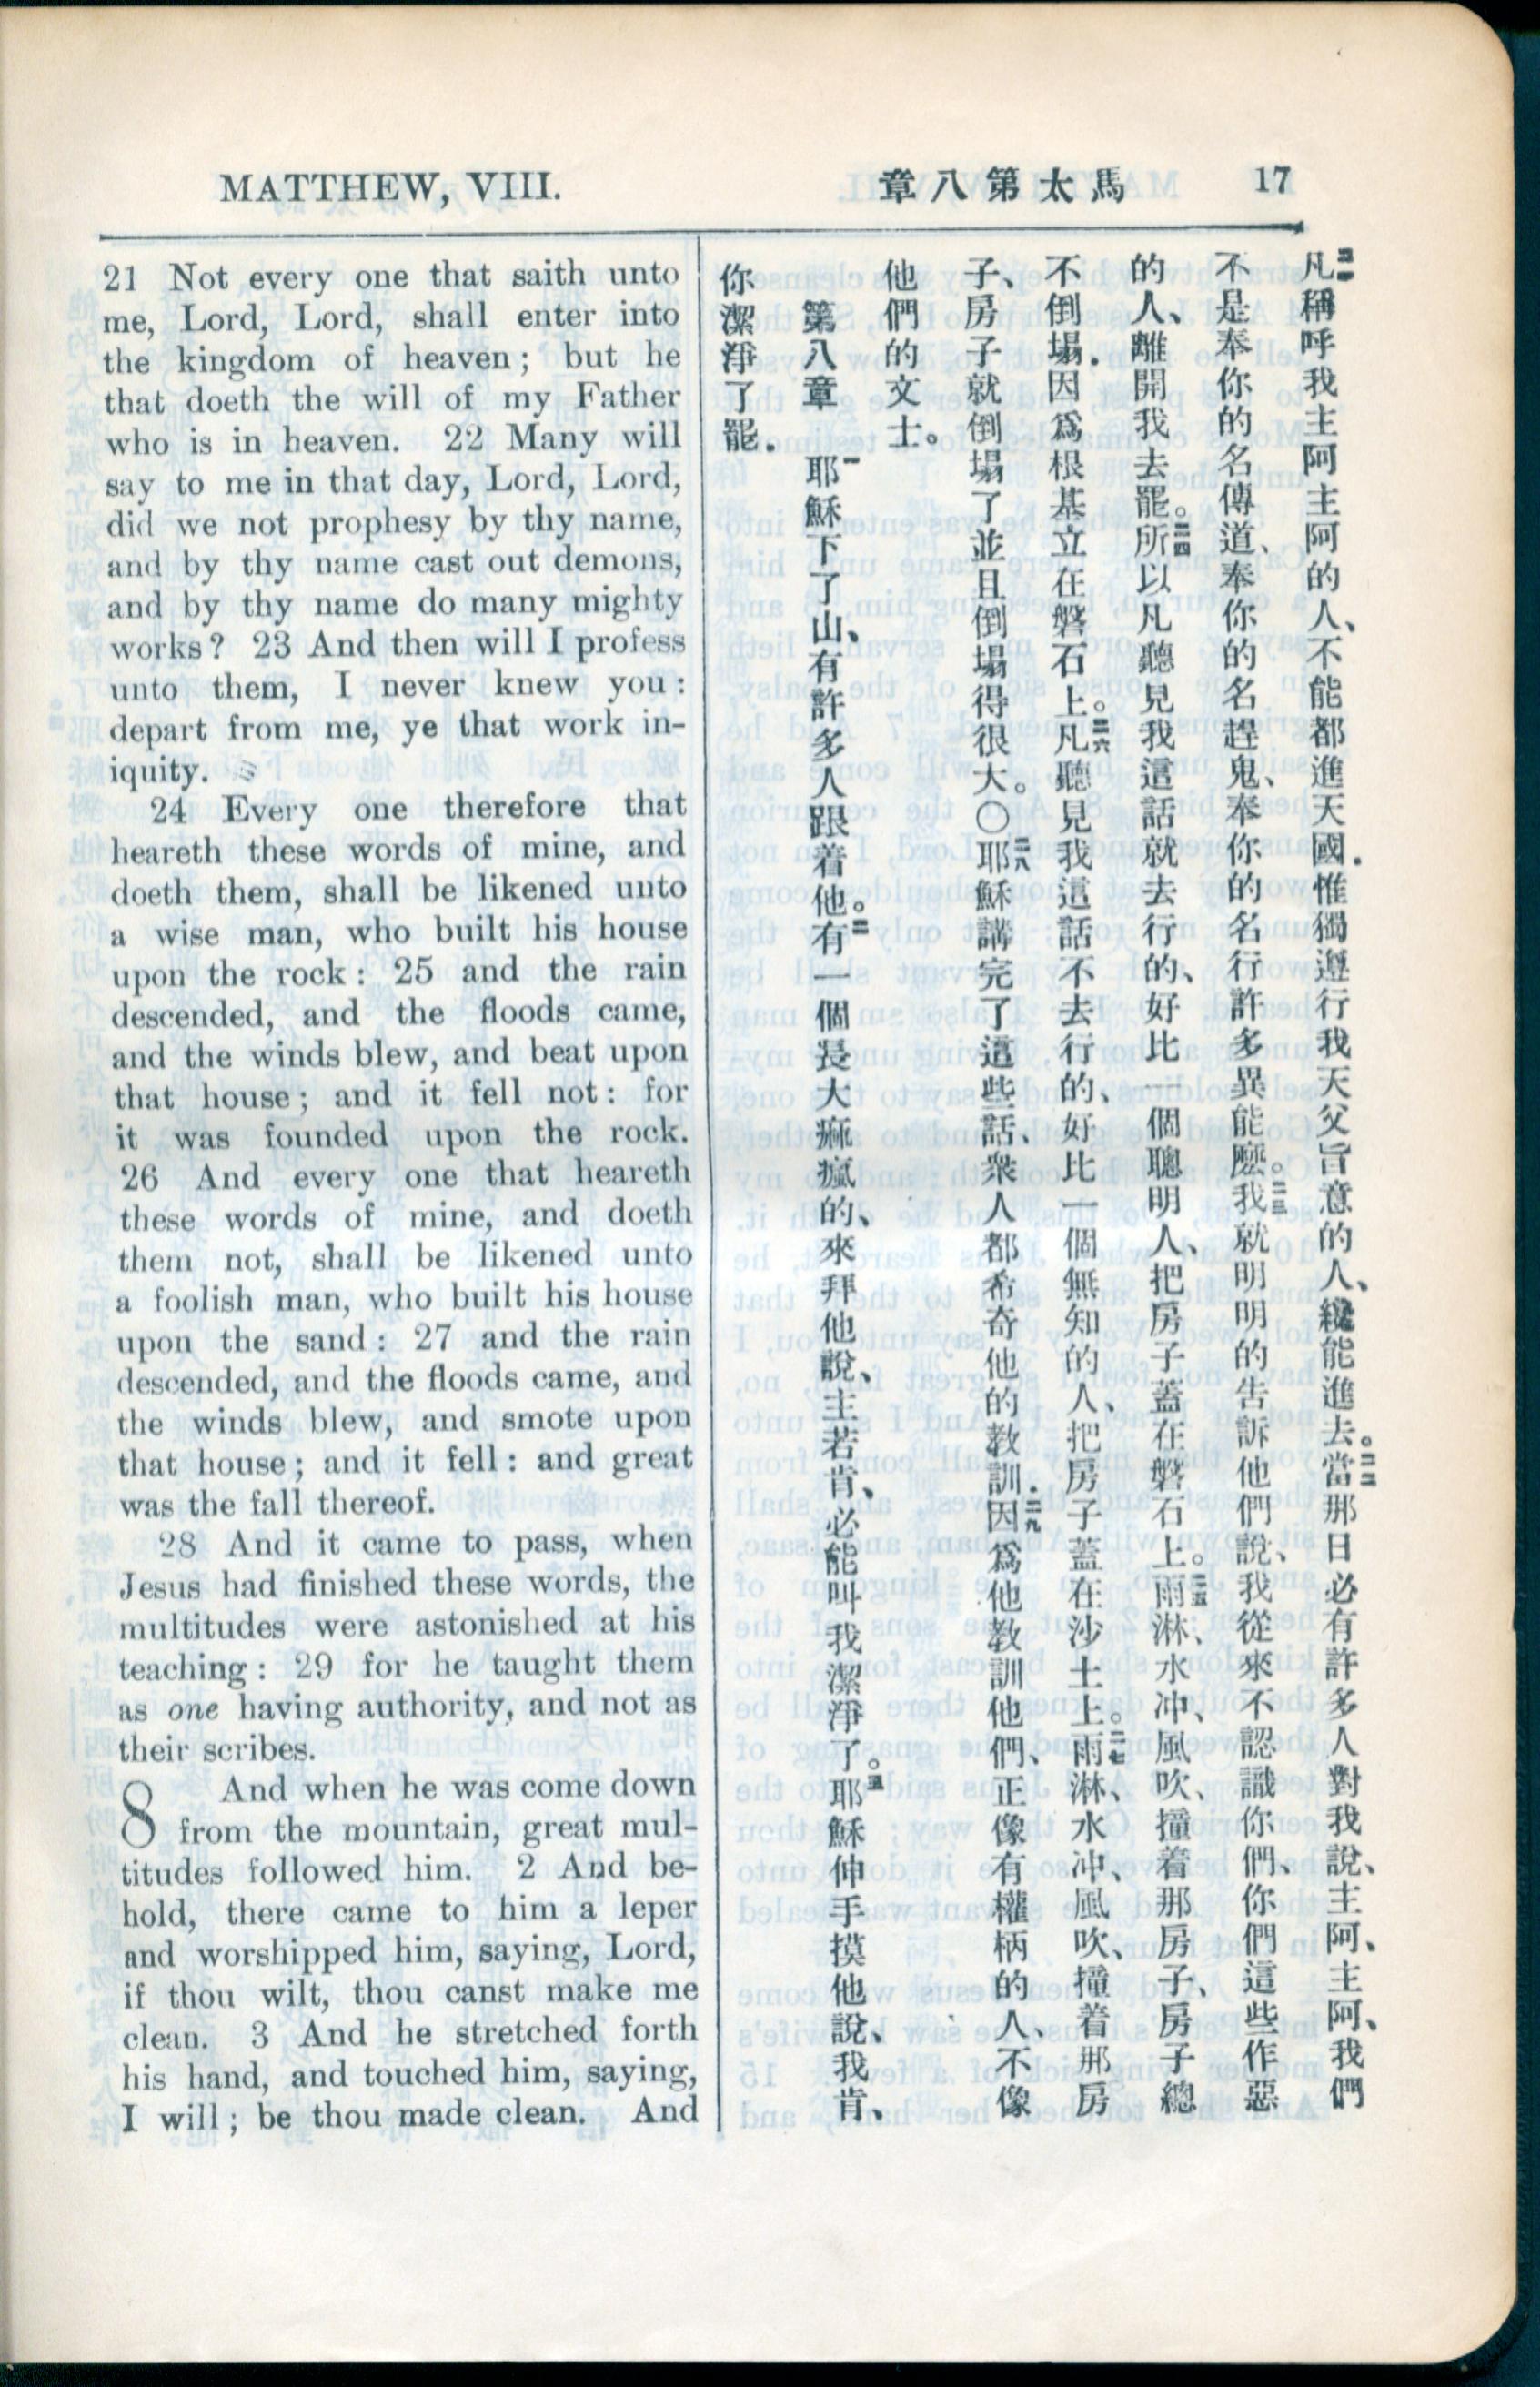 MATTHEW, VIII.
章八第太馬
17
21 Not every one that saith unto
me, Lord, Lord, shall enter into
the kingdom of heaven; but he
that doeth the will of my Father
who is in heaven. 22 Many will
say to me in that day, Lord, Lord,
did we not prophesy by thy name,
and by thy name cast out demons,
and by thy name do many mighty
works? 23 And then will I profess
unto them, I never knew you:
depart from me, ye that work in-
iquity.
24 Every one therefore that
heareth these words of mine, and
doeth them, shall be likened unto
a wise man, who built his house
upon the rock: 25 and the rain
descended, and the floods came,
and the winds blew, and beat upon
that house; and it fell not: for
it was founded upon the rock.
26 And every one that heareth
these words of mine, and doeth
them not, shall be likened unto
a foolish man, who built his house
upon the sand: 27 and the rain
descended, and the floods came, and
the winds blew, and smote upon
that house; and it fell: and great
was the fall thereof.
28 And it came to pass, when
Jesus had finished these words, the
multitudes were astonished at his
teaching: 29 for he taught them
as one having authority, and not as
their scribes.
8 And when he was come down
from the mountain, great mul-
titudes followed him. 2 And be-
hold, there came to him a leper
and worshipped him, saying, Lord,
if thou wilt, thou canst make me
clean. 3 And he stretched forth
his hand, and touched him, saying,
I will; be thou made clean. And
二一凡稱呼我主阿主阿的人、不能都進天國．惟獨遵行我天父旨意的人、纔能進去。二二當那日必有許多人對我說、主阿、主阿、我們
不是奉你的名傳道、奉你的名趕鬼、奉你的名行許多異能麼。二三我就明明的告訴他們說、我從來不認識你們、你們這些作惡
的人、離開我去罷。二四所以凡聽見我這話就去行的、好比一個聰明人、把房子蓋在磐石上。二五雨淋、水冲、風吹、撞着那房子、房子總
不倒塌．因爲根基立在磐石上。二六凡聽見我這話不去行的、好比一個無知的人、把房子蓋在沙土上。二七雨淋、水冲、風吹、撞着那房
子、房子就倒塌了並且倒塌得很大。〇二八耶穌講完了這些話、衆人都希奇他的教訓．二九因爲他教訓他們、正像有權柄的人、不像
他們的文士。
第八章 一耶穌下了山、有許多人跟着他。二有一個長大痲瘋的、來拜他說、主若肯、必能叫我潔淨了。三耶穌伸手摸他說、我肯、
你潔淨了罷．